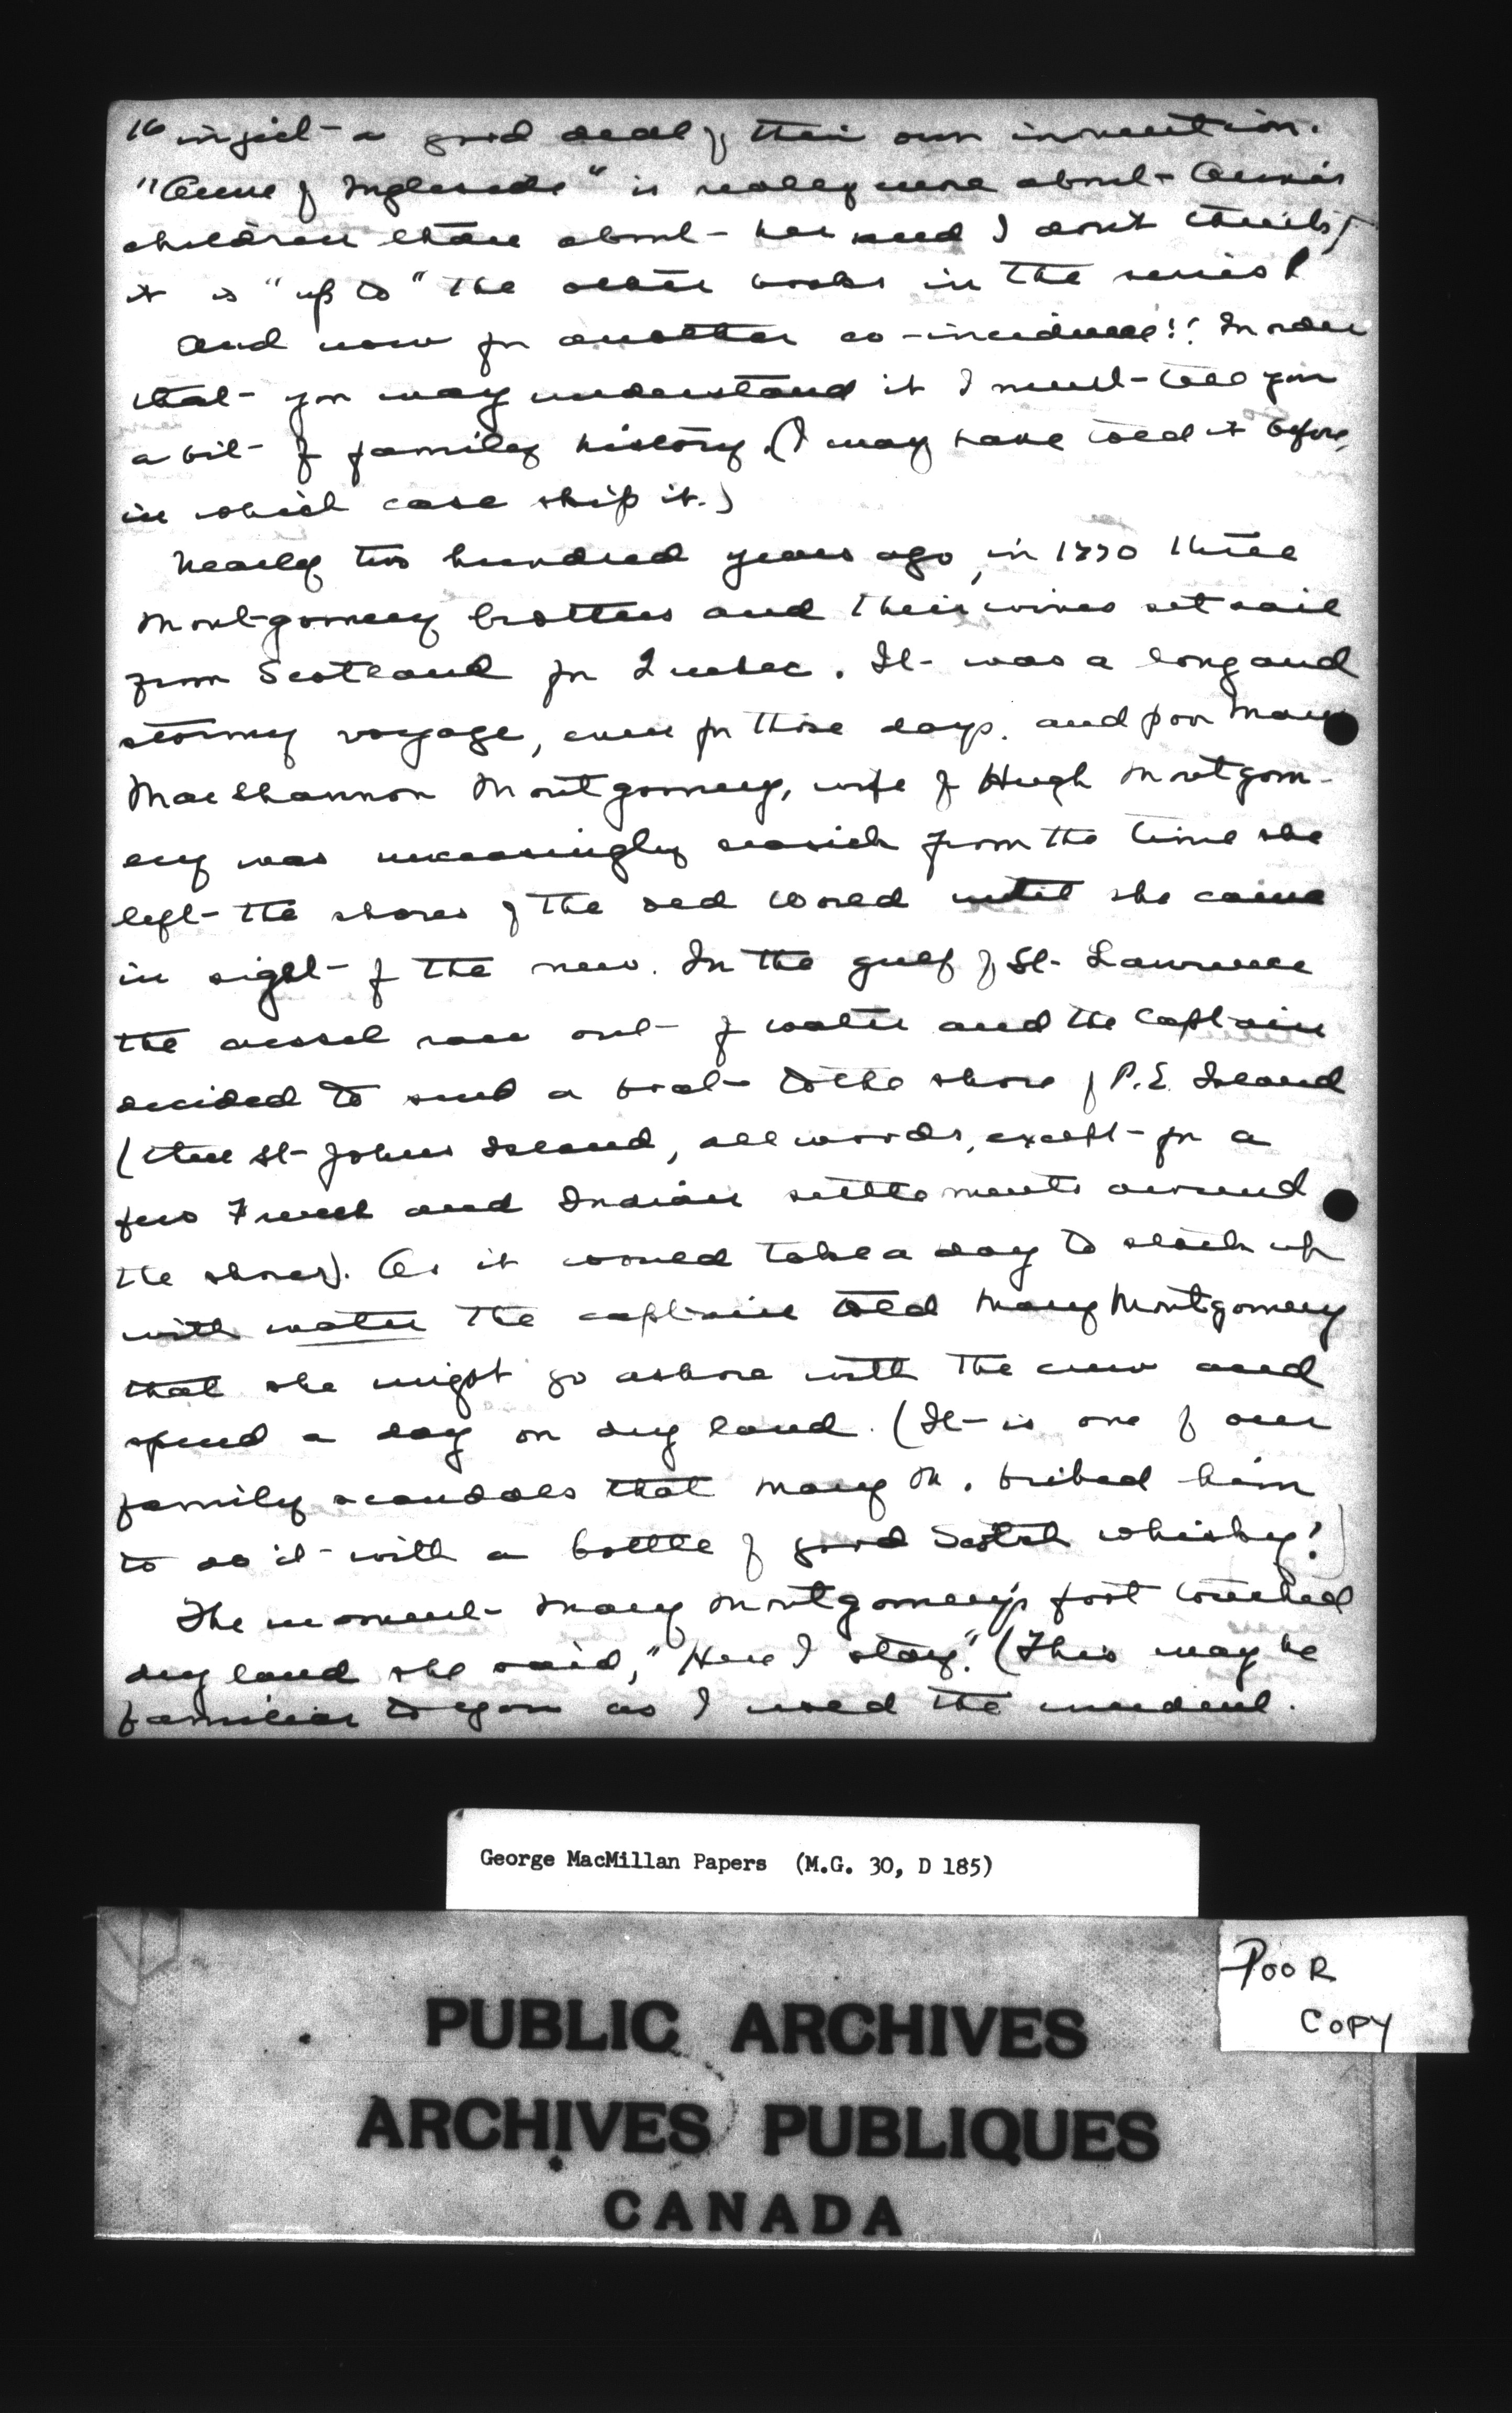 16 inject a good deal of their own invention.
"Anne of Ingleside" is really more about Anne's
children than about her and I don't think
it is "up to" the other books in the series.
And now for another co-incidence!! In order
that you may understand it I must tell you
a bit of family history. (I may have told it before,
in which case skip it.)
Nearly two hundred years ago, in 1770 three
Montgomery brothers and their wives set sail
from Scotland for Quebec. It was a long and
stormy voyage, even for those days. and poor Mary
MacShannon Montgomery, wife of Hugh Montgom-
ery was unceasingly seasick from the time she
left the shores of the old world until she came
in sight of the new. In the gulf of St. Lawrence
the vessel ran out of water and the captain
decided to send a boat to the shore of P.E. Island
(then St. Johns Island, all woods, except for a
few French and Indian settlements around
the shores). As it would take a day to stock up
with water the captain told Mary Montgomery
that she might go ashore with the crew and
spend a day on dry land. (It is one of our
family scandals that Mary M. bribed him
to do it with a bottle of good Scotch whiskey!)
The moment Mary Montgomery's foot touched
dry land she said, "Here I stay". (This may be
familiar to you as I used the incident.
George MacMillan Papers (M.G. 30, D 185)
POOR
COPY
PUBLIC ARCHIVES
ARCHIVES PUBLIQUES
CANADA